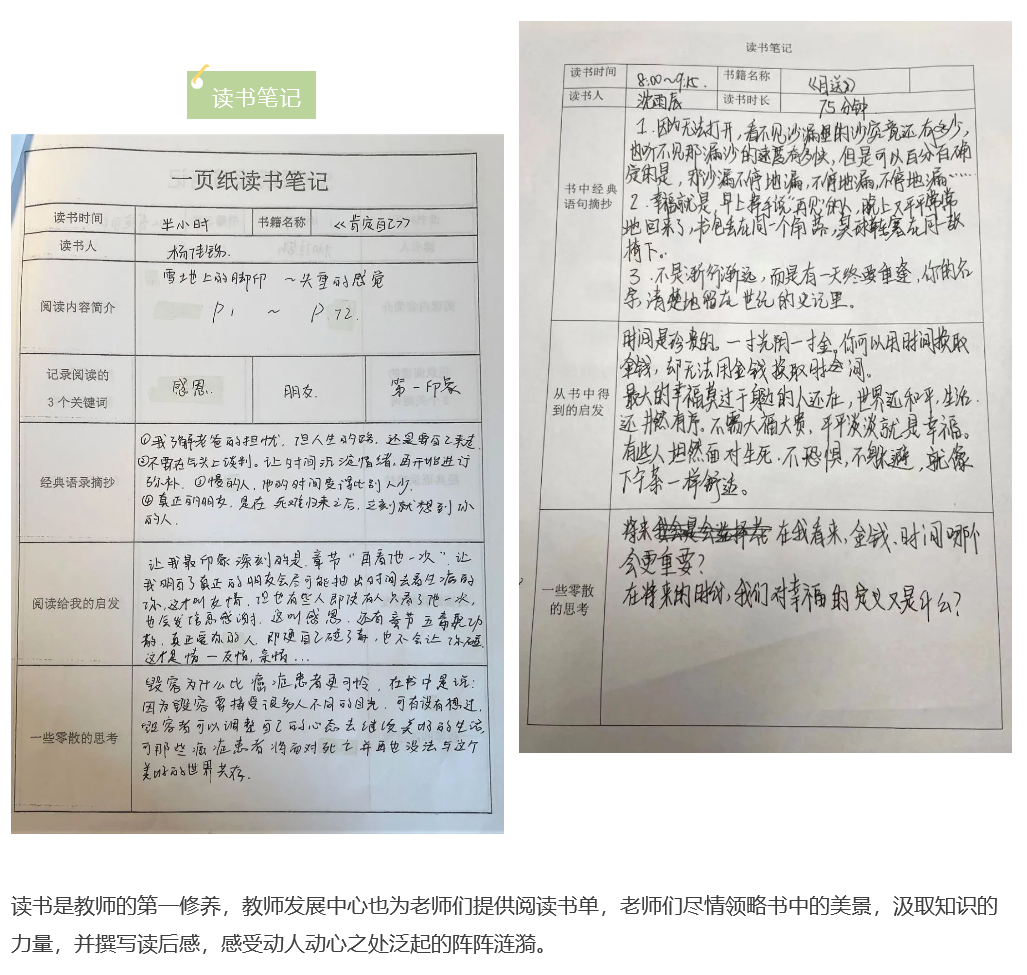 读书笔记
一页纸读书笔记
读书时间 半小时 书籍名称 《肯定自己》
读书人 杨佳
阅读内容简介 雪地上的脚印 ~失重的感觉
P1 ~ P72.
记录阅读的
3个关键词 感恩. 朋友. 第一印象
经典语录摘抄
①我了解老爸的担忧, 但人生的路, 还是要自己来走.
②不要在气头上谈判。让时间沉淀情绪,再开始进行
弥补. ③慢的人, 他的时间变得比别人少.
④真正的朋友, 是在死难归来之后, 立刻就想到你
的人.
阅读给我的启发
让我最印象深刻的是, 章节“再看他一次”. 让
我明白了真正的朋友会尽可能抽出时间去看生病的
你,这才叫友情. 但也有些人即使有人只看了他一次,
也会发信息感谢. 这叫感恩. 还有章节
真正爱你的人. 即便自己 也不会让你
这才是情一友情, 亲情...
一些零散的思考
毁容为什么比癌症患者更可怜, 在书中是说:
因为毁容要接受很多人不同的目光. 可有没有想过,
毁容者可以调整自己的心态去继续美好的生活,
可那些癌症患者将面对死亡并再也没法与这个
美好的世界共存.
读书笔记
读书时间 8:00~9:15. 书籍名称 《目送》
读书人 沈雨辰 读书时长 75分钟
书中经典
语句摘抄
1.因为无法打开,看不见沙漏里的沙究竟还有多少,
也听不见那漏沙的速度有多快, 但是可以百分百确
定的是, 那沙漏不停地漏,不停地漏,不停地漏……
2.幸福就是,早上挥手说“再见”的人,晚上又平平常常
地回来了,书包丢在同一个角落,臭球鞋塞在同一张
椅下。
3.不是渐行渐远, 而是有一天终要重逢, 你的名
字,清楚地留在世纪的史记里。
从书中得
到的启发
时间是珍贵的。一寸光阴一寸金。你可以用时间换取
金钱, 却无法用金钱换取时间。
最大的幸福莫过于身边的人还在,世界还和平,生活
还井然有序。不需大福大贵, 平平淡淡就是幸福。
有些人坦然面对生死. 不恐惧,不躲避, 就像
下午茶一样舒适。
一些零散
的思考
将来 在我看来, 金钱、时间哪个
会更重要?
在将来的时候, 我们对幸福的定义又是什么?
读书是教师的第一修养，教师发展中心也为老师们提供阅读书单，老师们尽情领略书中的美景，汲取知识的
力量，并撰写读后感，感受动人动心之处泛起的阵阵涟漪。